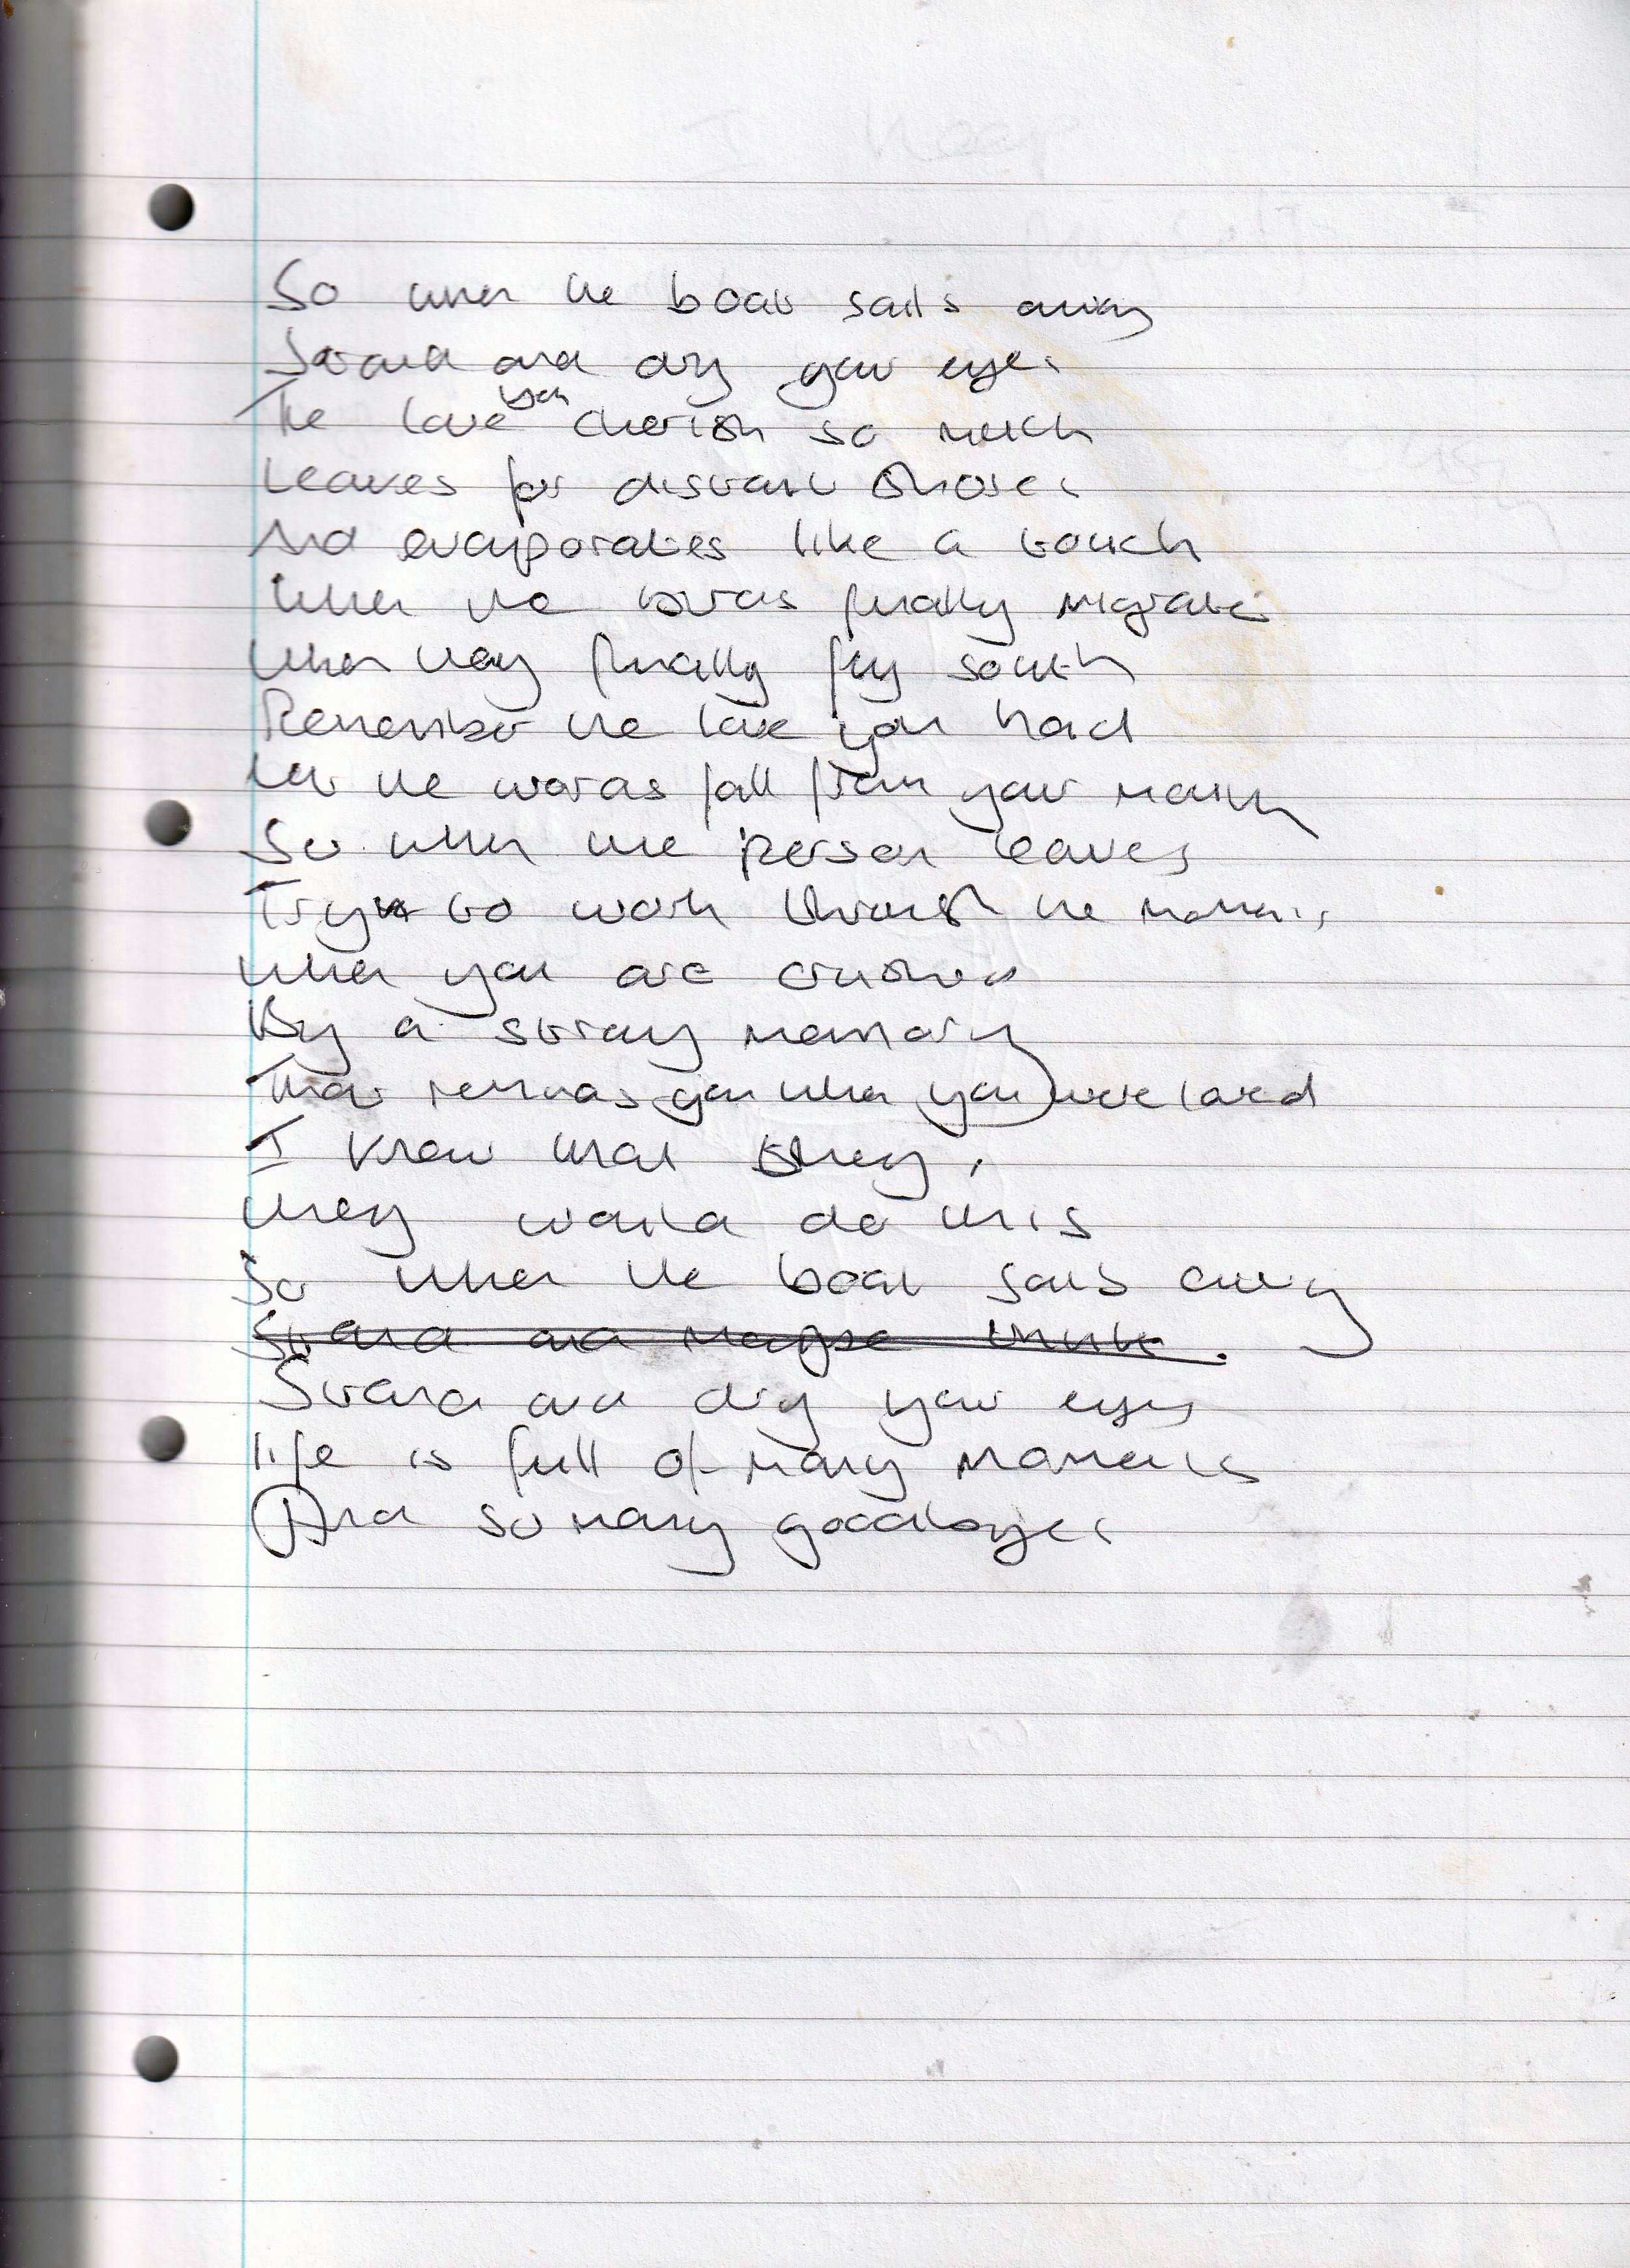 So when the boat sails away
Stand and dry your eyes
The love you cherish so much
Leaves for distant shores
And evaporates like a touch
When the birds finally migrate
When they finally fly south
Remember the love you had
Let the words fall from your mouth
So when the person leaves
Try to work through the moments
When you are crushed
By a stray memory
That reminds you when you were loved
I know that they,
They would do this
So when the boat sails away
Stand and maybe
Stand and dry your eyes
Life is full of many moments
And so many goodbyes